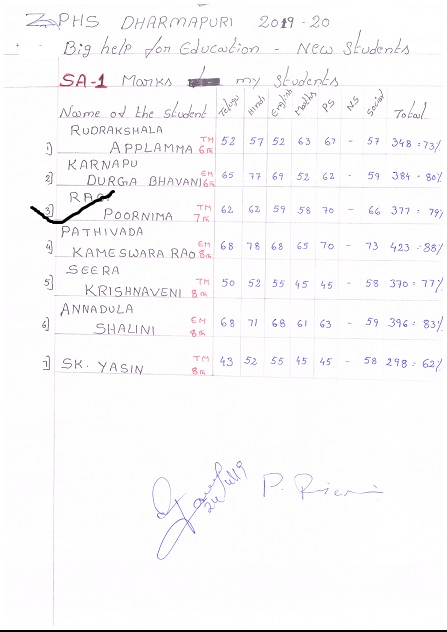 ZPHS DHARMAPURI 2019-20
Big help for Education - New Students
SA-1 Marks my Students
Name of the Student Telugu Hindi English Maths PS NS Social Total
RUDRAKSHALA
1) APPLAMMA TM 6th 52 57 52 63 67 - 57 348 = 73%
KARNAPU
2) DURGA BHAVANI EM 6th 65 77 69 52 62 - 59 384 = 80%
3) POORNIMA TM 7th 62 62 59 58 70 - 66 377 = 79%
PATHIVADA
4) KAMESWARA RAO EM 8th 68 78 68 65 70 - 73 423 = 88%
SEERA
5) KRISHNAVENI TM 8th 50 52 55 45 45 - 58 370 = 77%
ANNADULA
6) SHALINI EM 8th 68 71 68 61 63 - 59 396 = 83%
7) SK. YASIN TM 8th 43 52 55 45 45 - 58 298 = 62%